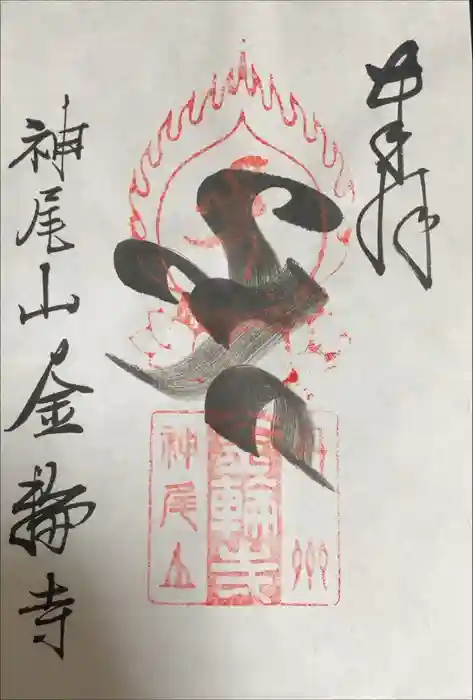 奉拝
丹州
金輪寺
神尾山
神尾山金輪寺